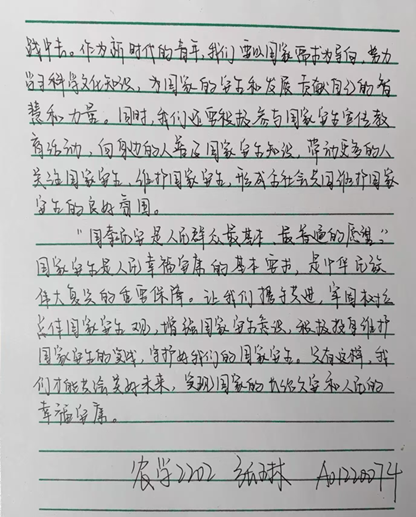 战中去。作为新时代的青年,我们要以国家需求为导向,努力
学习科学文化知识,为国家的安全和发展贡献自己的智
慧和力量。同时,我们还要积极参与国家安全宣传教
育活动,向身边的人普及国家安全知识,带动更多的人
关注国家安全,维护国家安全,形成全社会共同维护国家
安全的良好氛围。
“国泰民安是人民群众最基本、最普遍的愿望。”
国家安全是人民幸福安康的基本要求,是中华民族
伟大复兴的重要保障。让我们携手共进,牢固树立
总体国家安全观,增强国家安全意识,积极投身维护
国家安全的实践,守护好我们的国家安全。只有这样,我
们才能共绘美好未来,实现国家的长治久安和人民的
幸福安康。
农学2202 张琳 A01220074